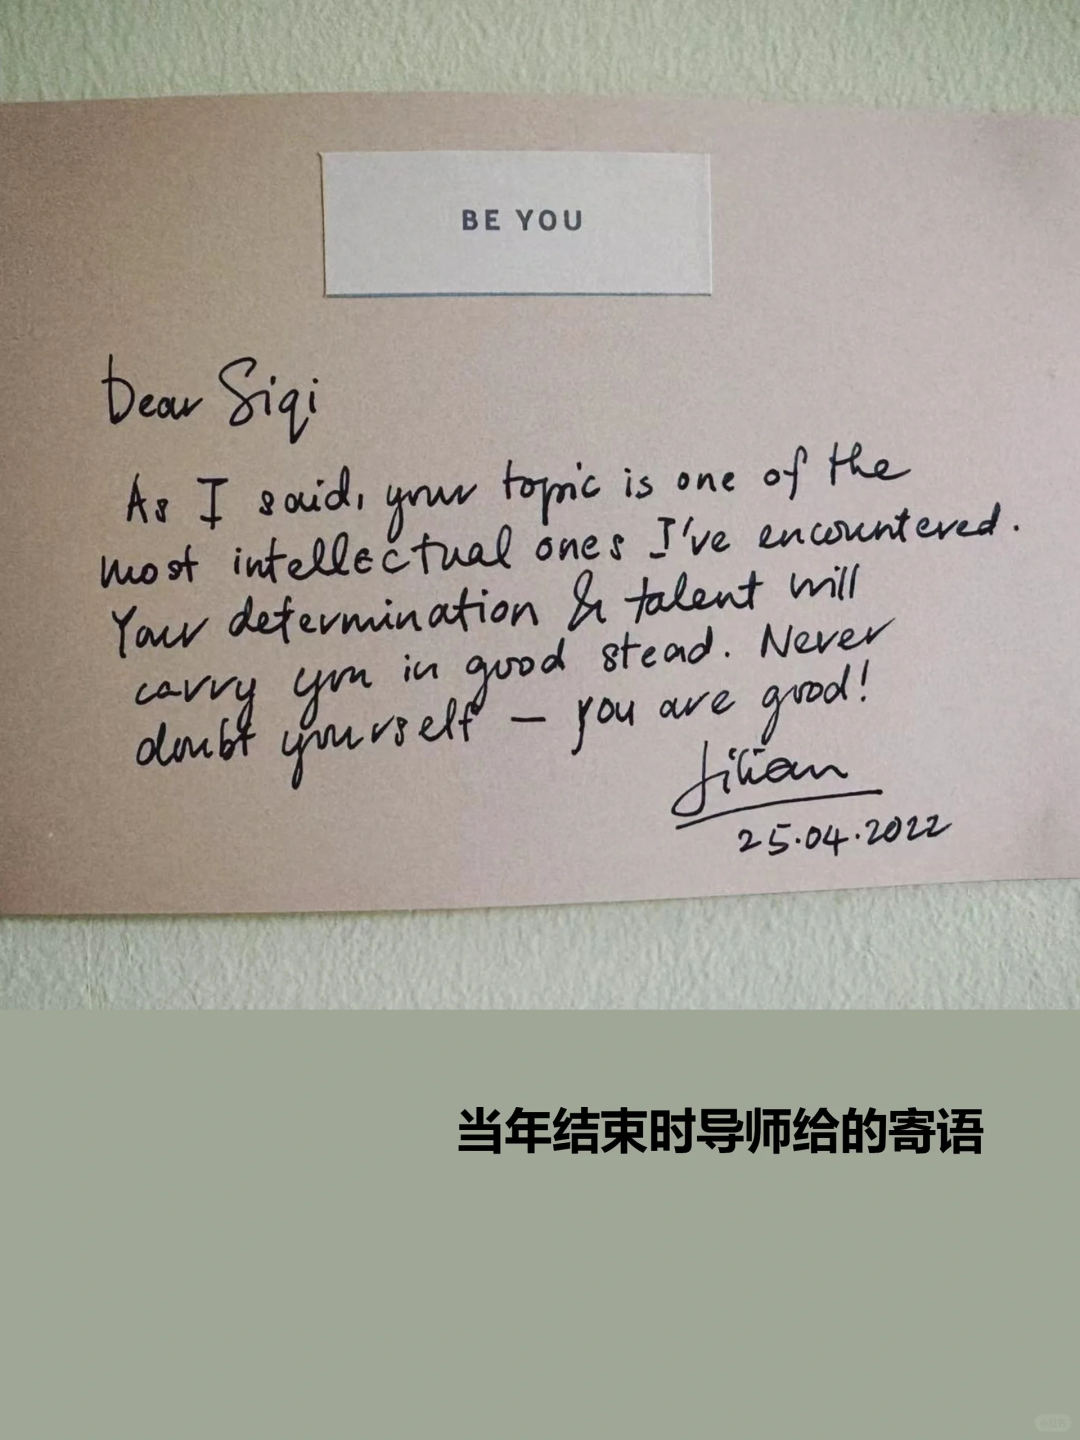 BE YOU
Dear Siqi
As I said, your topic is one of the
most intellectual ones I've encountered.
Your determination & talent will
carry you in good stead. Never
doubt yourself — you are good!
Jilian
25.04.2022
当年结束时导师给的寄语